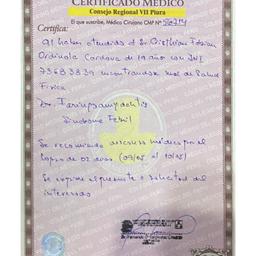 CERTIFICADO MÉDICO
Consejo Regional VII Piura
El que suscribe, Médico Cirujano CMP Nº
Certifica:
al Sr. Cristhian Fabian
Ordinola Cordova de 19 años con DNI
73683839 encontrandose mal de Salud
Fisica
Dx. Faringoamigdalitis
Sindrome Febril
Se recomienda descanso médico por el
lapso de 02 dias
Se expide el presente a solicitud del
interesado